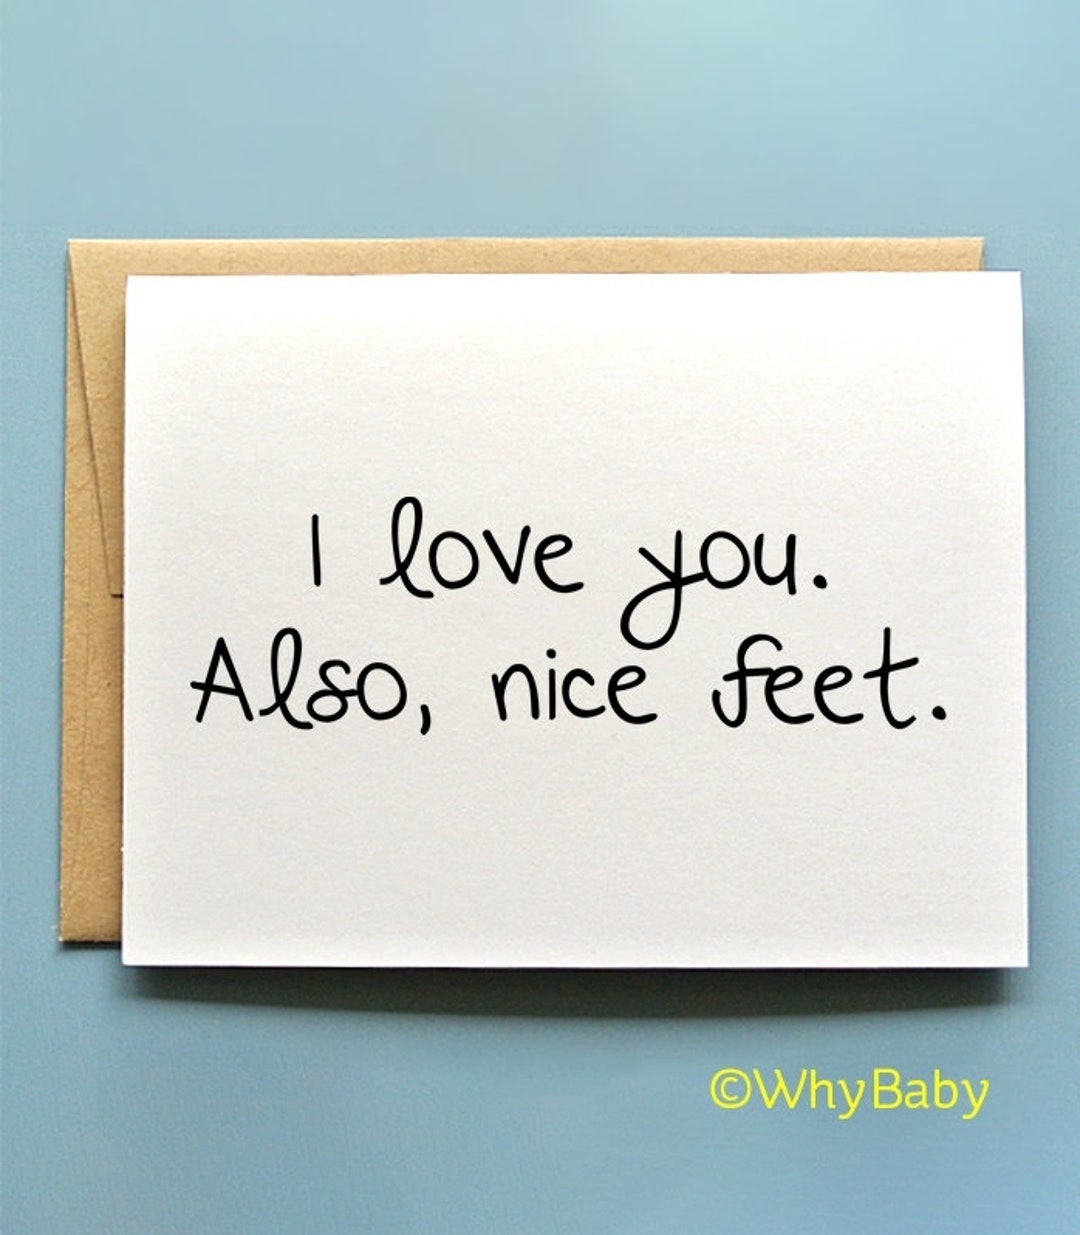 I love you.
Also, nice feet.
©WhyBaby